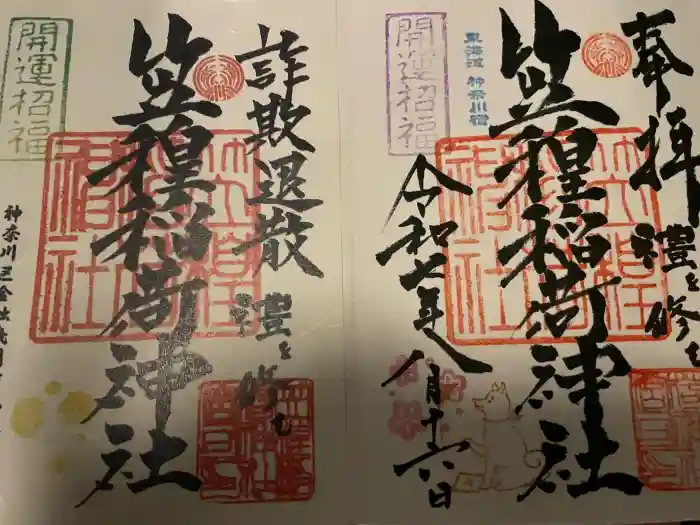 奉拝
禮を修む
笠䅣稲荷神社
東海道 神奈川宿
開運招福
令和七年八月十六日
詐欺退散
禮を修む
笠䅣稲荷神社
開運招福